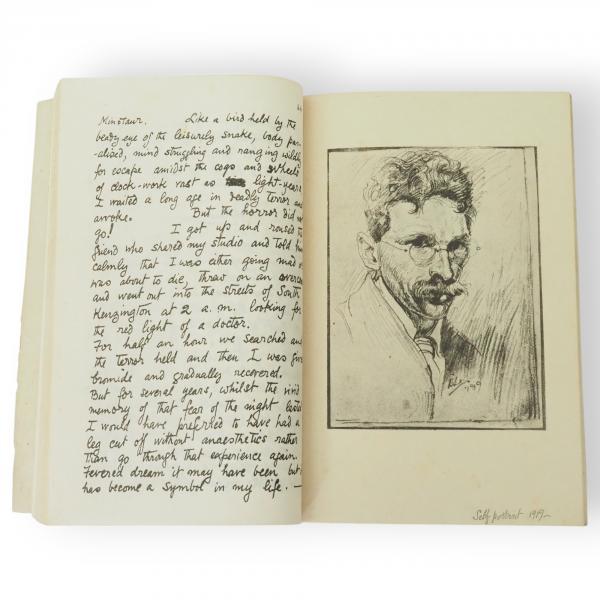 Minotaur. Like a bird held by the
beady eye of the leisurely snake, body par-
-alised, mind struggling and ranging wildly
for escape amidst the cogs and wheels
of clock-work vast as light-years
I waited a long age in deadly terror and
awoke. But the horror did not
go! I got up and roused the
friend who shared my studio and told him
calmly that I was either going mad or
was about to die, threw on an overcoat
and went out into the streets of South
Kenzington at 2 a.m. looking for
the red light of a doctor.
For half an hour we searched and
the terror held and then I was given
bromide and gradually recovered.
But for several years, whilst the vivid
memory of that fear of the night lasted
I would have preferred to have had a
leg cut off without anaesthetics rather
than go through that experience again.
Fevered dream it may have been but
has become a symbol in my life. —
Self portrait 1919-